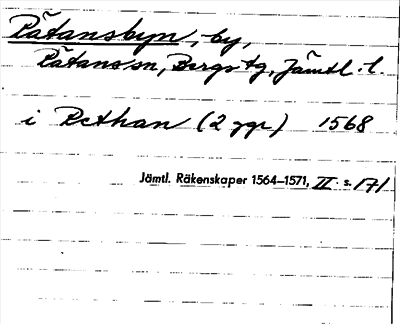 Råtansbyn, by,
Råtans sn, Bergs tg, Jämtl. l.
i Rethan (2 ggr) 1568
Jämtl. Räkenskaper 1564–1571, II s. 171